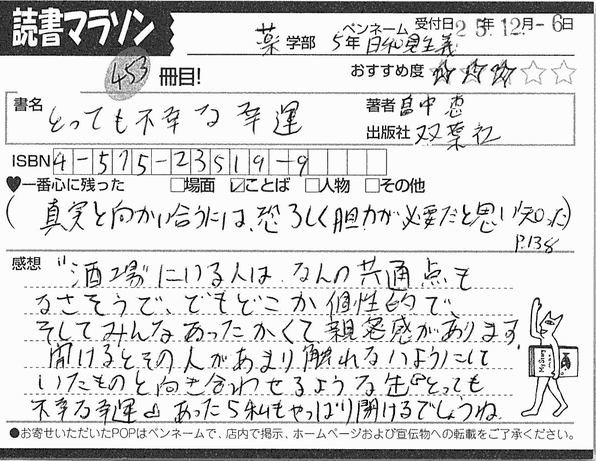 読書マラソン
薬 学部 5年 ペンネーム 日和見主義 受付日 25年12月-6日
453 冊目! おすすめ度 ☆☆☆☆☆
書名 とっても不幸な幸運 著者 畠中恵
出版社 双葉社
ISBN 4-575-23519-9
♥一番心に残った □場面 ☑ことば □人物 □その他
(真実と向かい合うには、恐ろしく胆力が必要だと思い知った)
P.138
感想 "酒場"にいる人は、なんの共通点も
なさそうで、でもどこか個性的で、
そしてみんなあったかくて親密感があります。
開けるとその人があまり触れないようにして
いたものと向き合わせるような缶『とっても
不幸な幸運』あったら私もやっぱり開けるでしょうね
●お寄せいただいたPOPはペンネームで、店内で掲示、ホームページおよび宣伝物への転載をご了承ください。